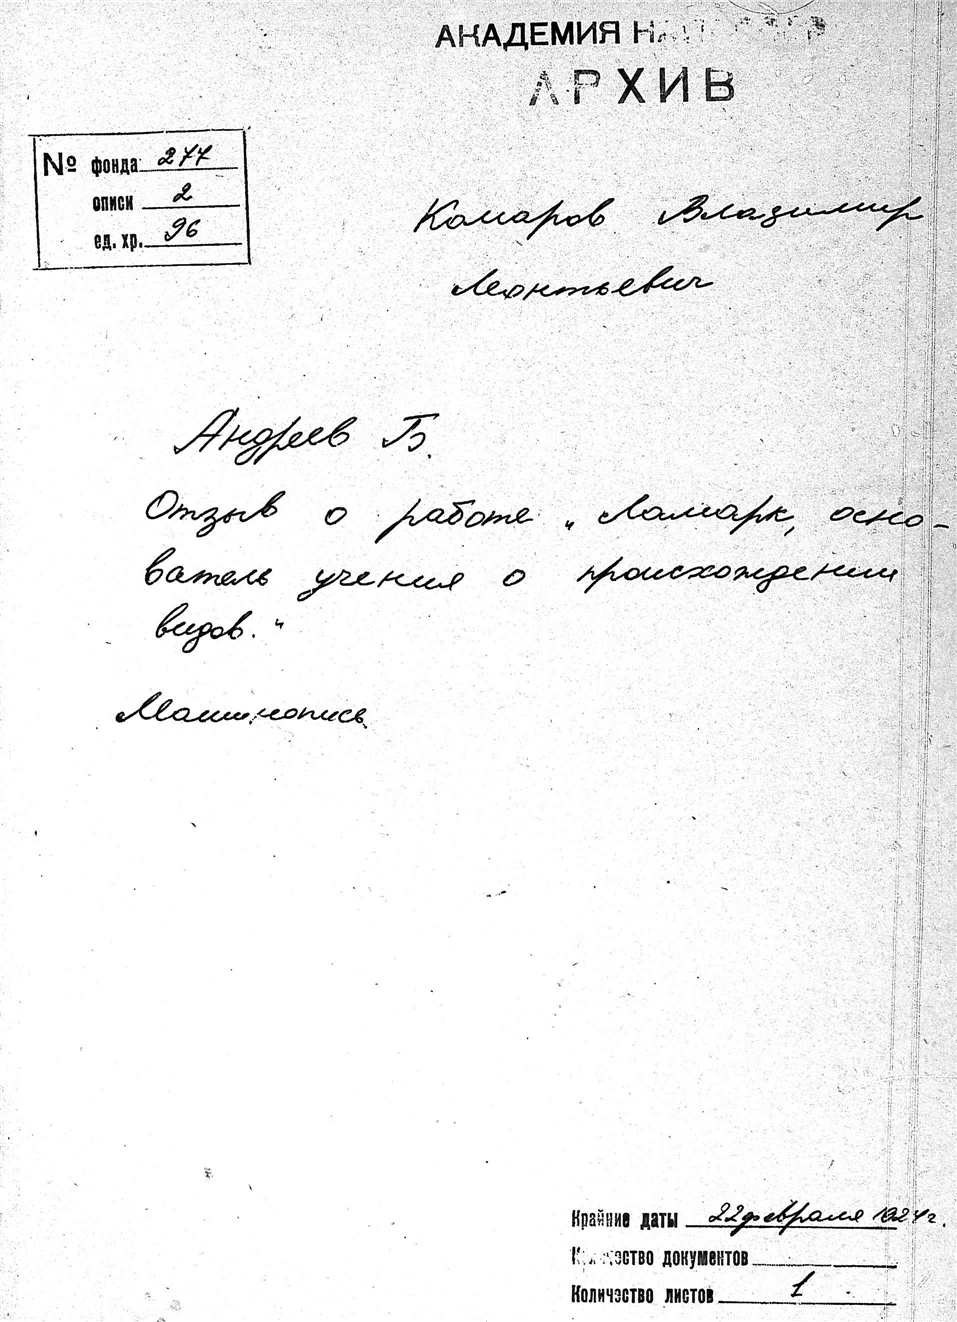 АКАДЕМИЯ НАУК СССР
АРХИВ
№ фонда 277
описи 2
ед. хр. 96
Комаров Владимир
Леонтьевич
Андреев Б.
Отзыв о работе „Ламарк, осно-
ватель учения о происхождении
видов."
Машинопись
Крайние даты 22 февраля 1924 г.
Количество документов
Количество листов 1